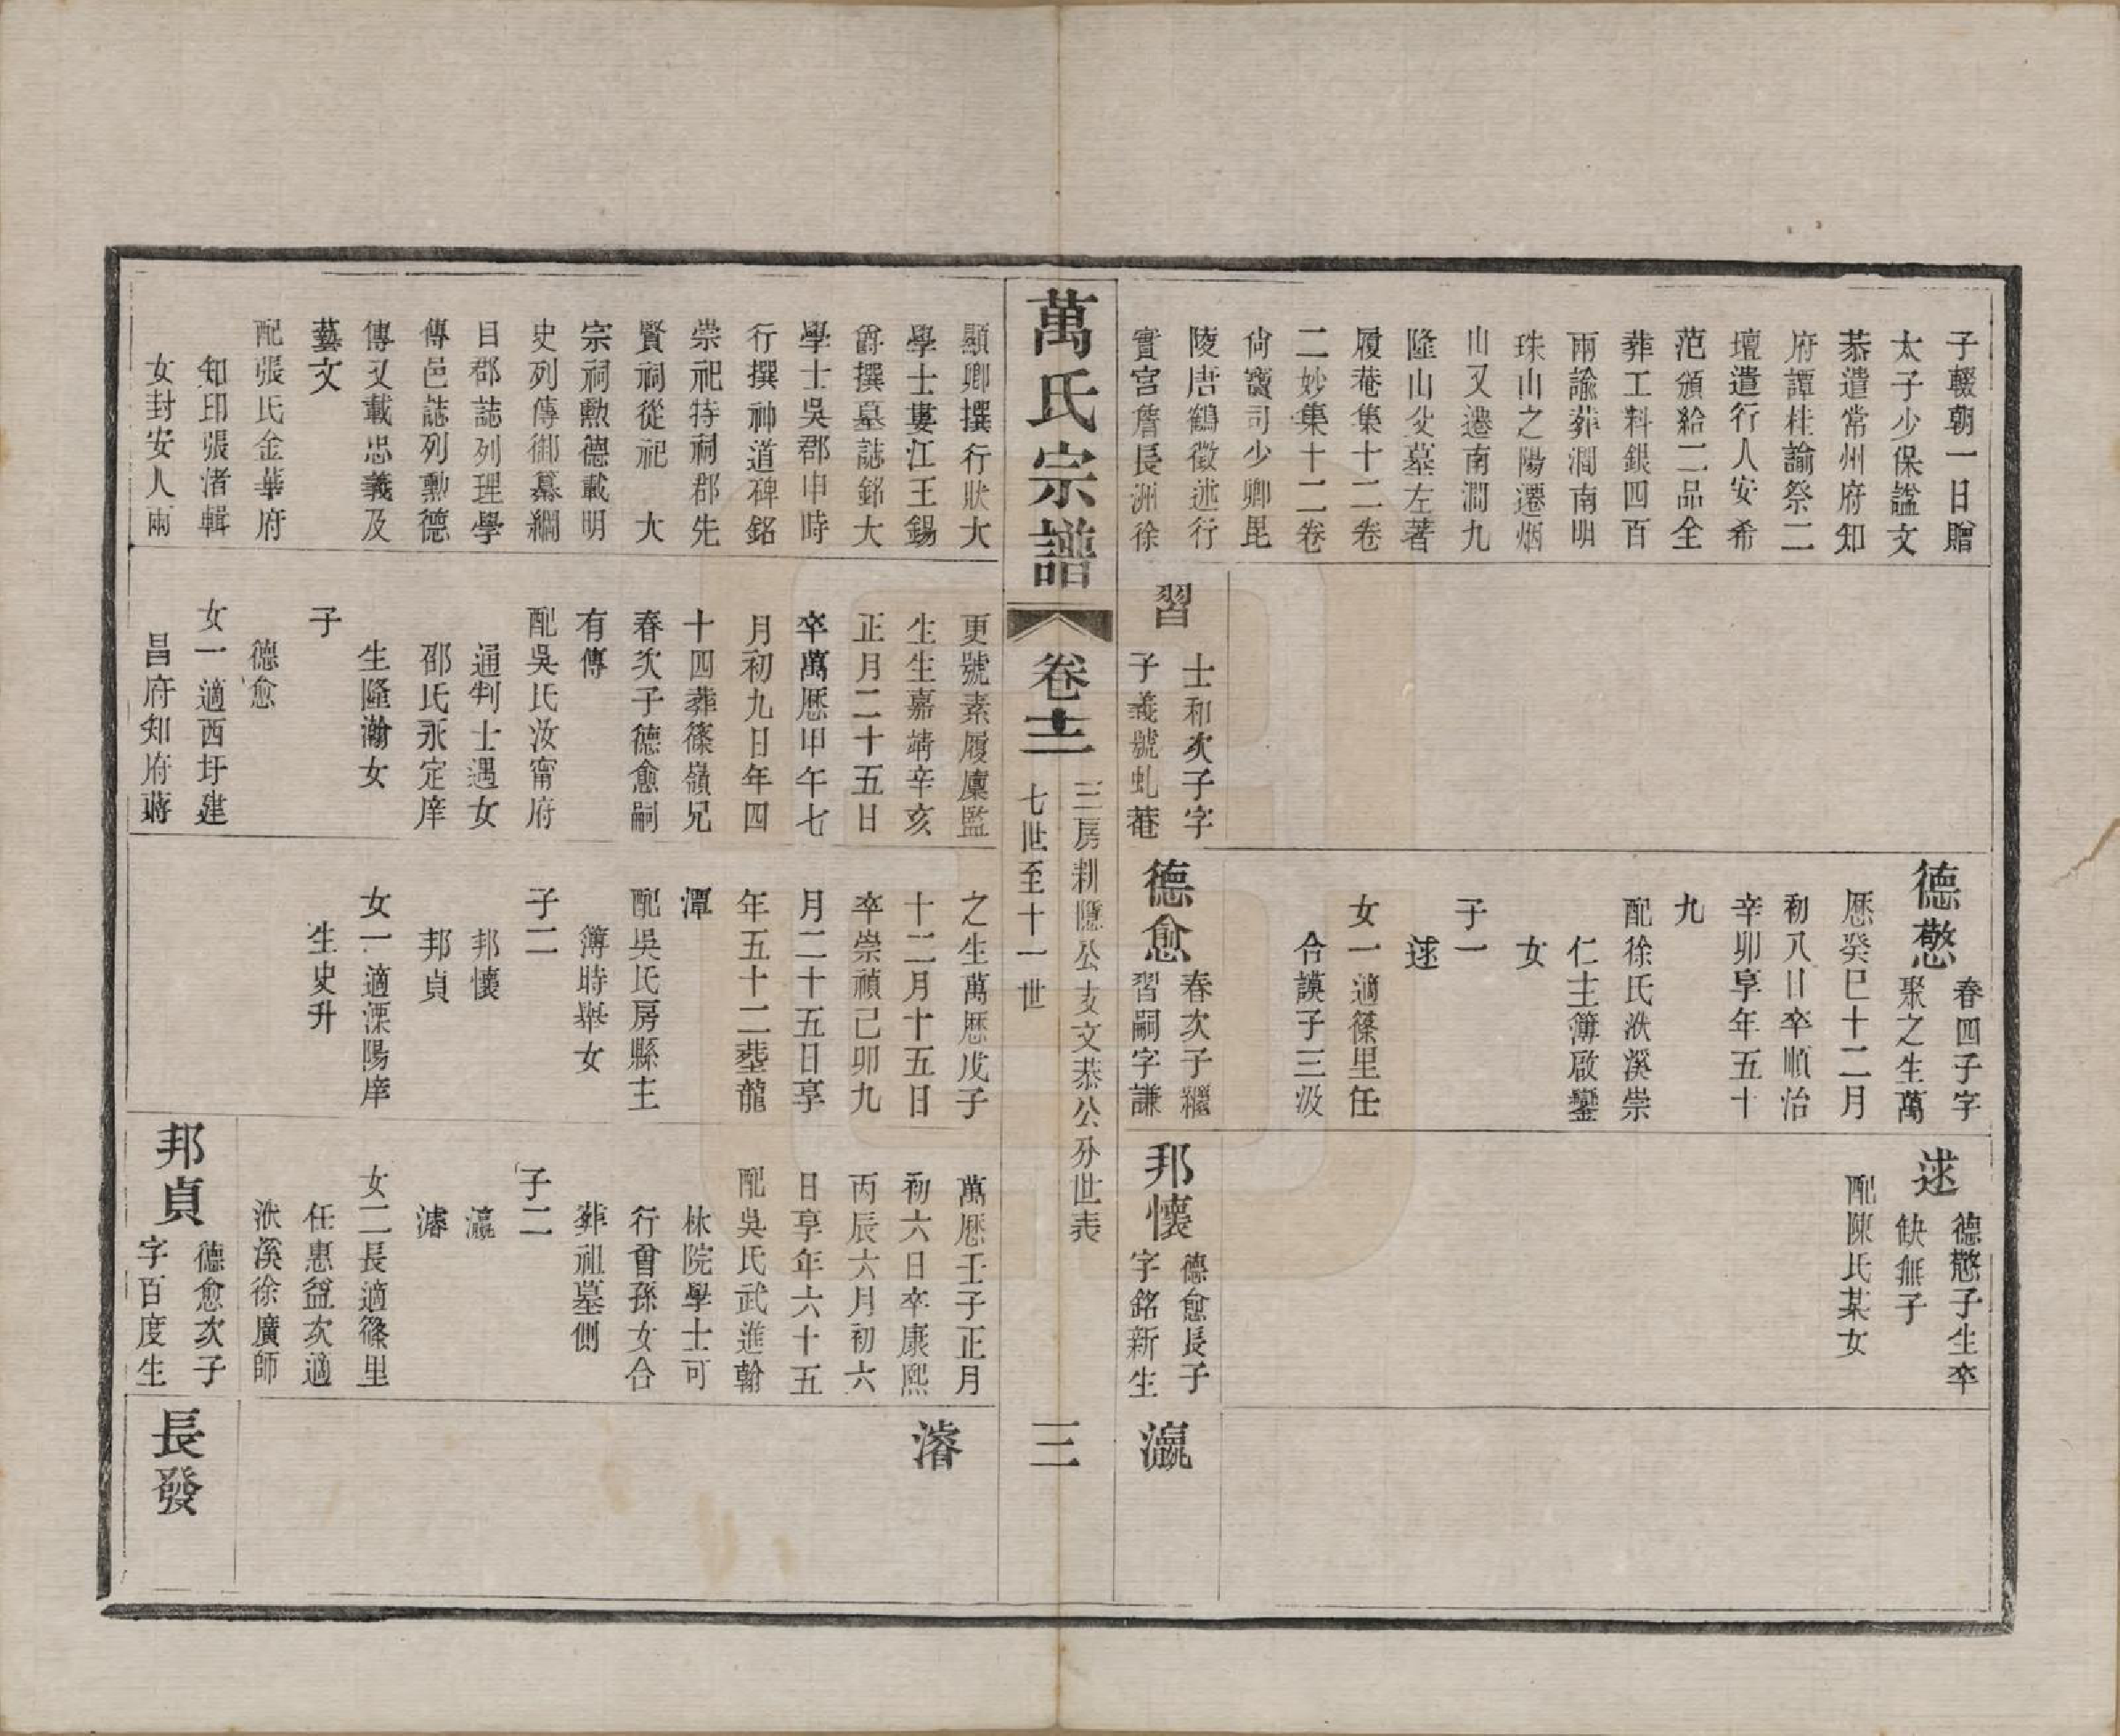 子輟朝一日贈
太子少保諡文
恭遣常州府知
府譚桂諭祭二
壇遣行人安希
范頒給二品全
葬工料銀四百
兩諭葬澗南明
珠山之陽遷烟
山又遷南澗九
隆山父墓左著
履菴集十二卷
二妙集十二卷
尙寶司少卿毘
陵唐鶴徵述行
實宮詹長洲徐
習
士和次子字
子義號虬菴
德愗
春四子字
聚之生萬
歷癸巳十二月
初八日卒順治
辛卯享年五十
九
配徐氏洑溪崇
仁主簿啟鑾
女
子一
逑
女一適篠里任
合謨子三汲
德愈
春次子繼
習嗣字謙
逑
德愗子生卒
缺無子
配陳氏某女
邦懷
德愈長子
字銘新生
瀛
萬氏宗譜
卷十二
三房耕隱公支文恭公分世表
七世至十一世
三
顯卿撰行狀大
學士婁江王錫
爵撰墓誌銘大
學士吳郡申時
行撰神道碑銘
崇祀特祠郡先
賢祠從祀 大
宗祠勲德載明
史列傳御纂綱
目郡誌列理學
傳邑誌列勲德
傳又載忠義及
藝文
配張氏金華府
知印張渚輯
女封安人兩
更號素履廩監
生生嘉靖辛亥
正月二十五日
卒萬歷甲午七
月初九日年四
十四葬篠嶺兄
春次子德愈嗣
有傳
配吳氏汝甯府
通判士遇女
邵氏永定庠
生隆瀚女
子
德愈
女一適西圩建
昌府知府蔣
之生萬歷戊子
十二月十五日
卒崇禎己卯九
月二十五日享
年五十二塟龍
潭
配吳氏房縣主
簿時舉女
子二
邦懷
邦貞
女一適溧陽庠
生史升
萬歷壬子正月
初六日卒康熙
丙辰六月初六
日享年六十五
配吳氏武進翰
林院學士可
行曾孫女合
葬祖墓側
子二
瀛
濬
女二長適篠里
任惠益次適
洑溪徐廣師
邦貞
德愈次子
字百度生
濬
長發